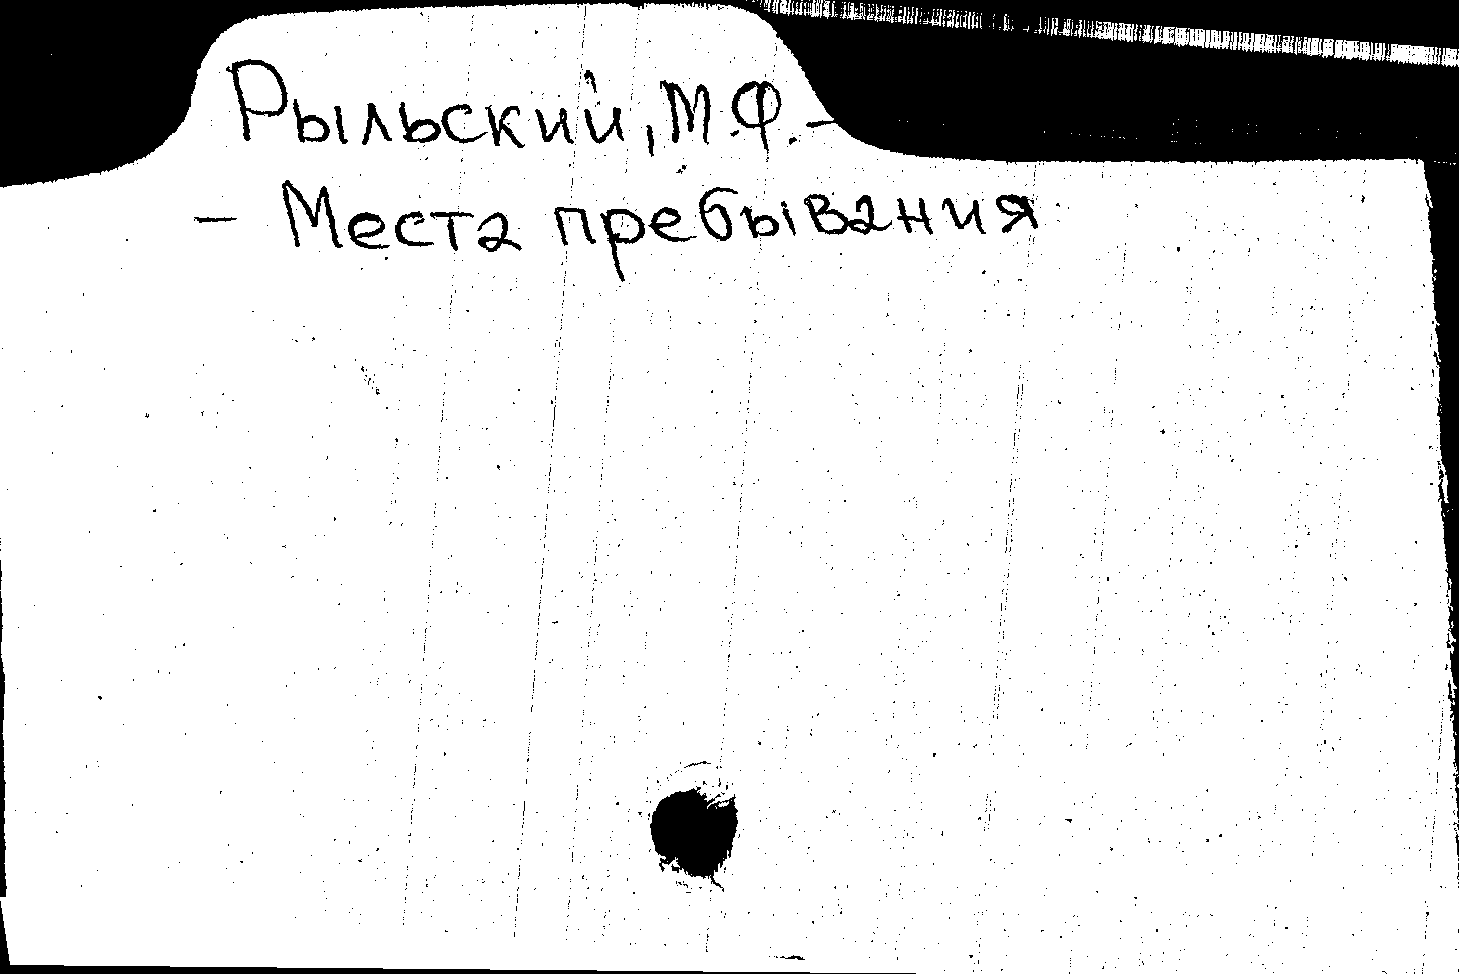 Рыльский, М.Ф. –
– Места пребывания